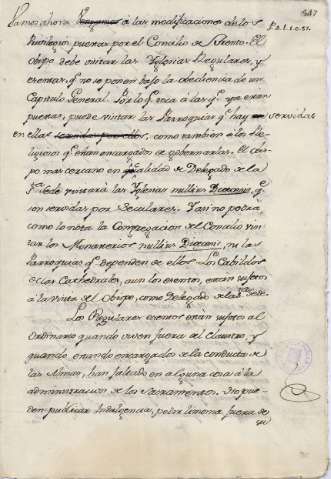 Vamos ahora a las modificaciones de los
Privilegios puestas por el Concilio de Trento. El
obispo debe visitar las Iglesias Regulares, y
esentas, qᵉ no se ponen bajo la obediencia de un
Capitulo General. Por lo qᵉ toca á las qᵉ ya estan
puestas, puede visitar las Parroquias qᵉ hay servidas
en ellas, como tambien á los Re-
ligiosos qᵉ estan encargados de gobernarlas. El obis-
po mas cercano en qualidad de Delegado de la
Sede visitará las Iglesias nullius Diocesis, qᵉ
son servidas por Seculares. Y asi no podra
como lo nota la Congregacion del Concilio visi-
tar los Monasterios nullius Diocesis, ni las
Parroquias qᵉ dependen de ellos. Los Cabildos
de las Cathedrales, aun los esentos, estan sujetos
a la visita del Obispo, como Delegado de la Sᵗᵃ Sede.
Los Regulares esentos estan sujetos al
Ordinario quando viven fuera del Claustro, y
quando estando encargados de la conducta de
las Almas, han faltado en alguna cosa á la
administracion de los Sacramentos. No pue-
den publicar Indulgencias, pedir limosna fuera de
su